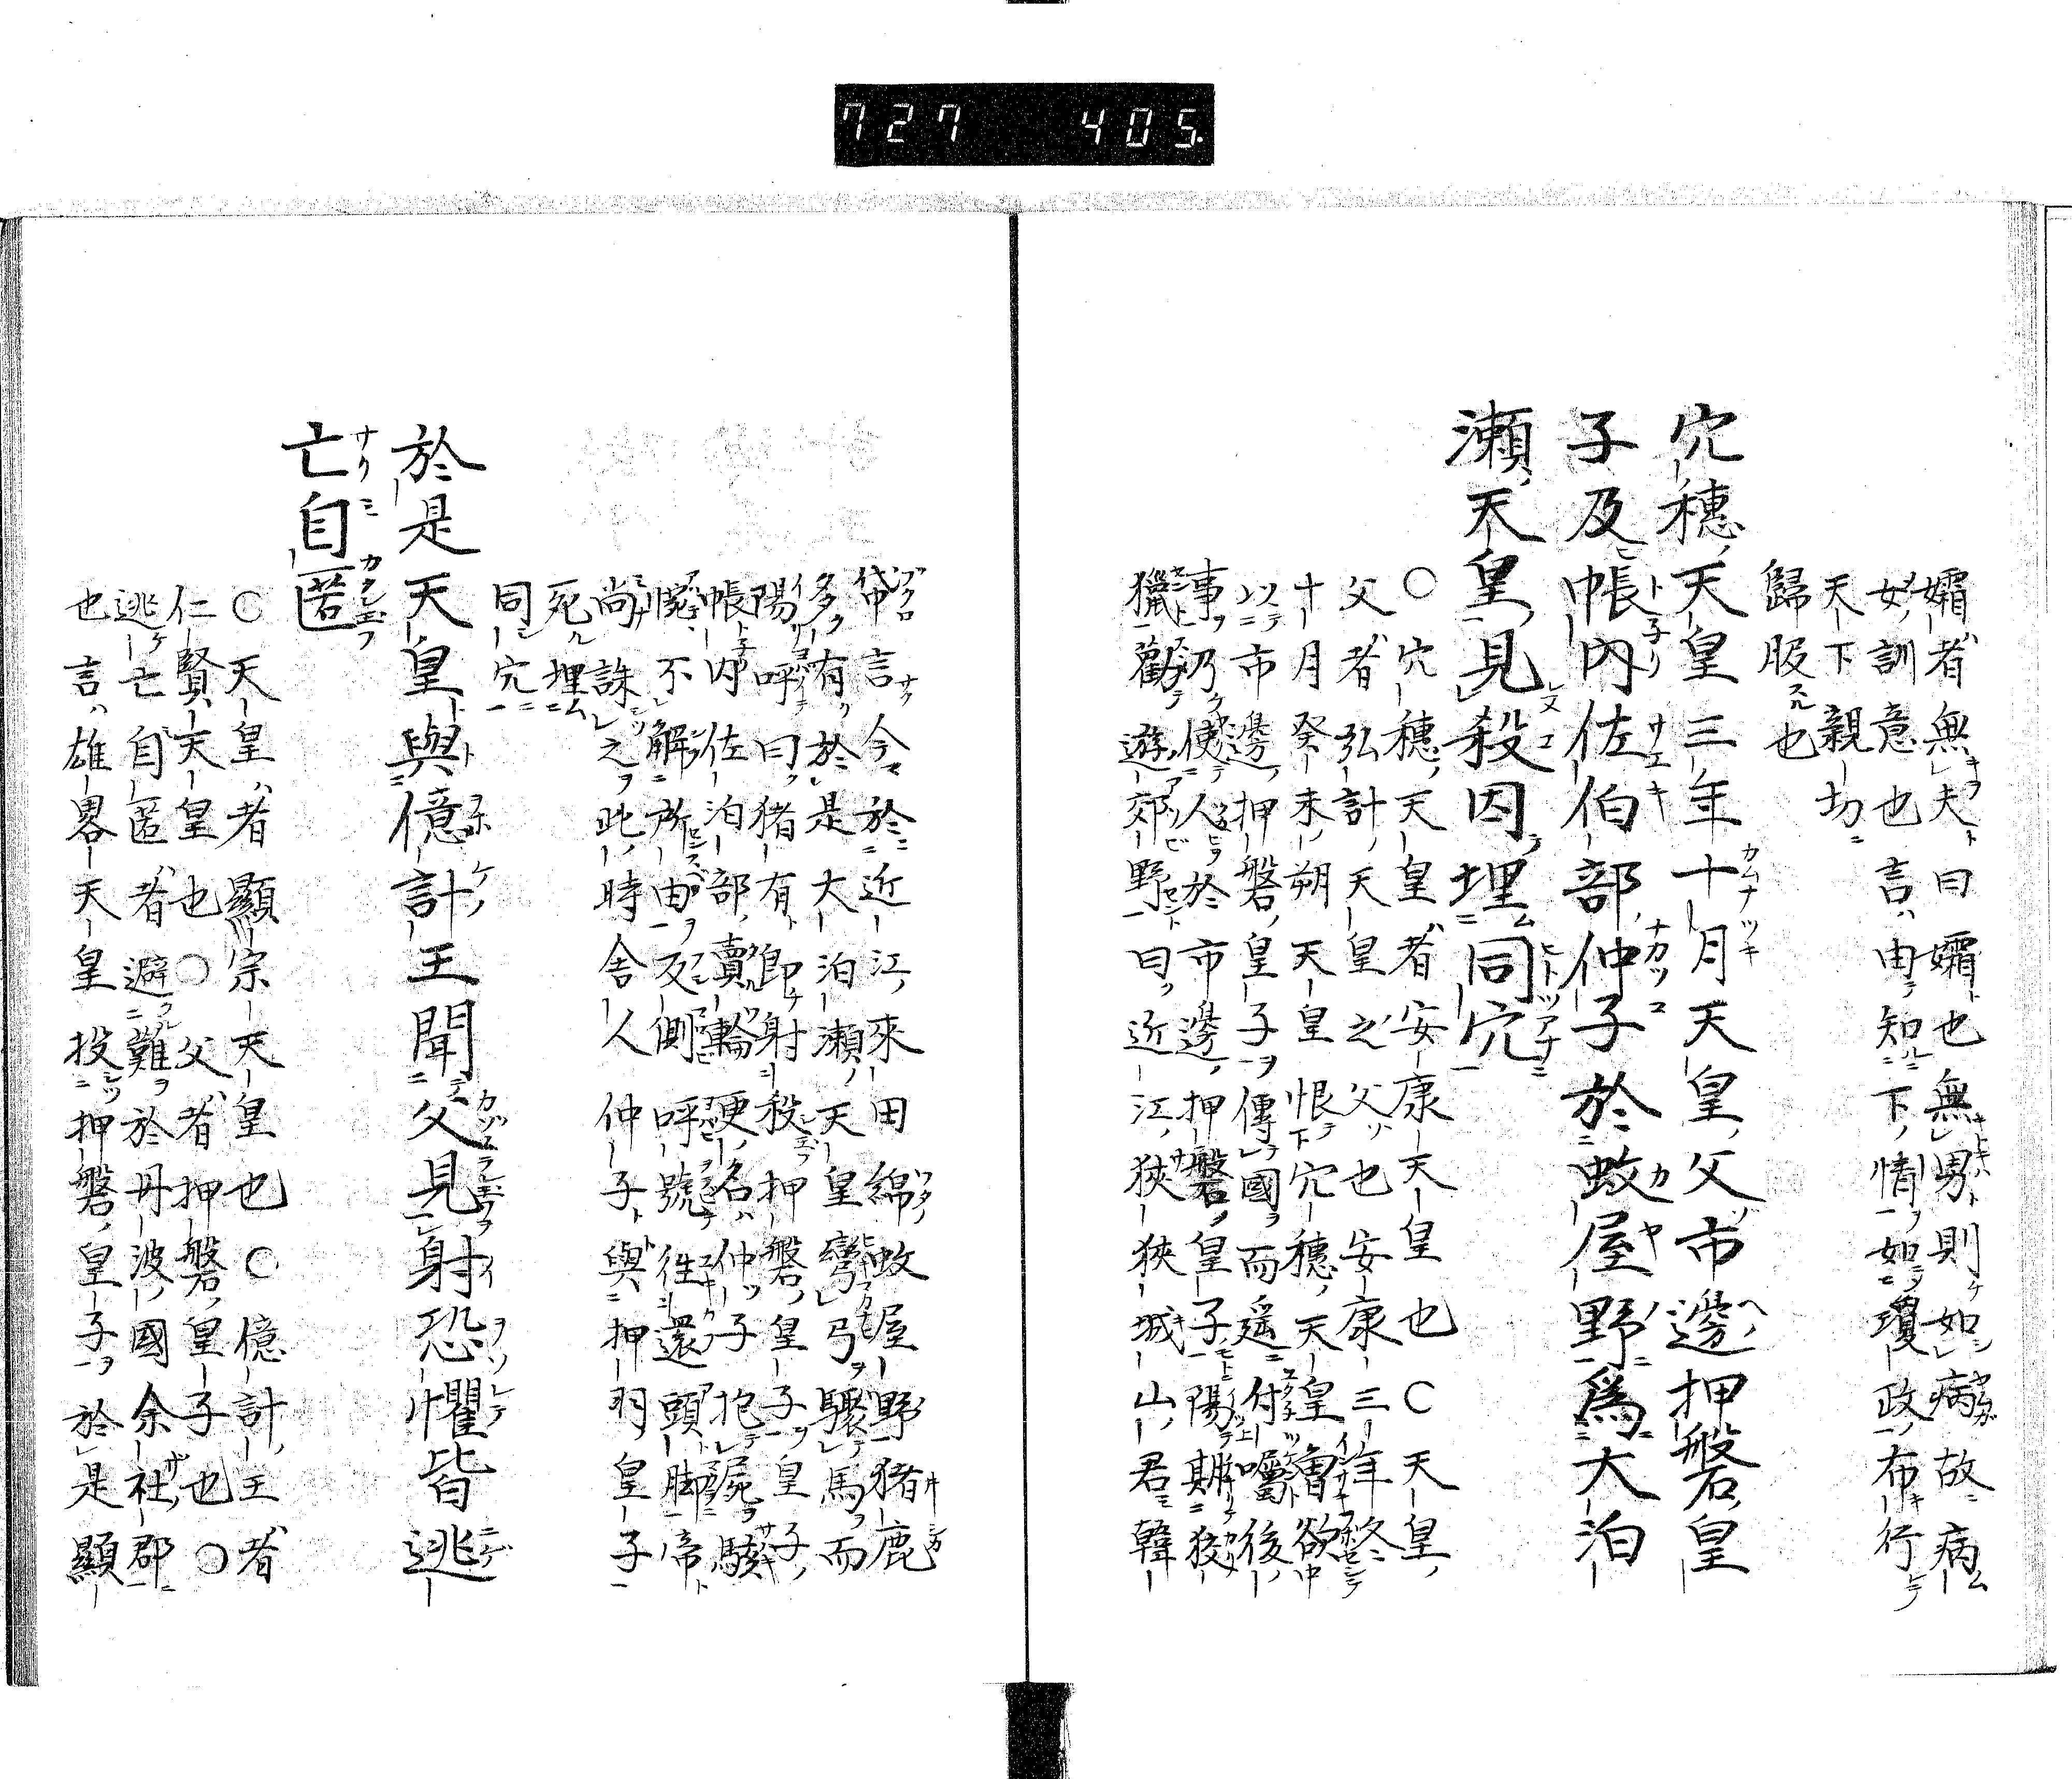 727 405.
孀者無夫曰孀也無男則如病故病
女訓意也言由知下情如瓊政布行
天下親切
歸服也
穴穗天皇三年十月天皇父市邊押磐皇
子及帳內佐伯部仲子於蚊屋野爲大泊
瀬天皇見殺因埋同穴
○穴穗天皇者安康天皇也○天皇
父者弘計天皇之父也安康三年冬
十月癸未朔天皇恨下穴穗天皇曽欲中
以市邊押磐皇子傳國而遥付上囑後
事乃使人於市邊押磐皇子陽期狡
獵勸遊郊野曰近江狹狹城山君韓
帒言今於近江來田綿蚊屋野猪鹿
多有於是大泊瀬天皇彎弓驟馬而
陽呼曰猪有即射殺押磐皇子皇子
帳内佐泊部賣輪更名仲子抱屍駭
惋不解所由反側呼號往還頭脚帝
尚誅之此時舎人仲子與押羽皇子
死埋
同穴
於是天皇與億計王聞父見射恐懼皆逃
亡自匿
○天皇者顯宗天皇也○億計王者
仁賢天皇也○父者押磐皇子也○
逃亡自匿者避難於丹波國余社郡
也言雄畧天皇投押磐皇子於是顯